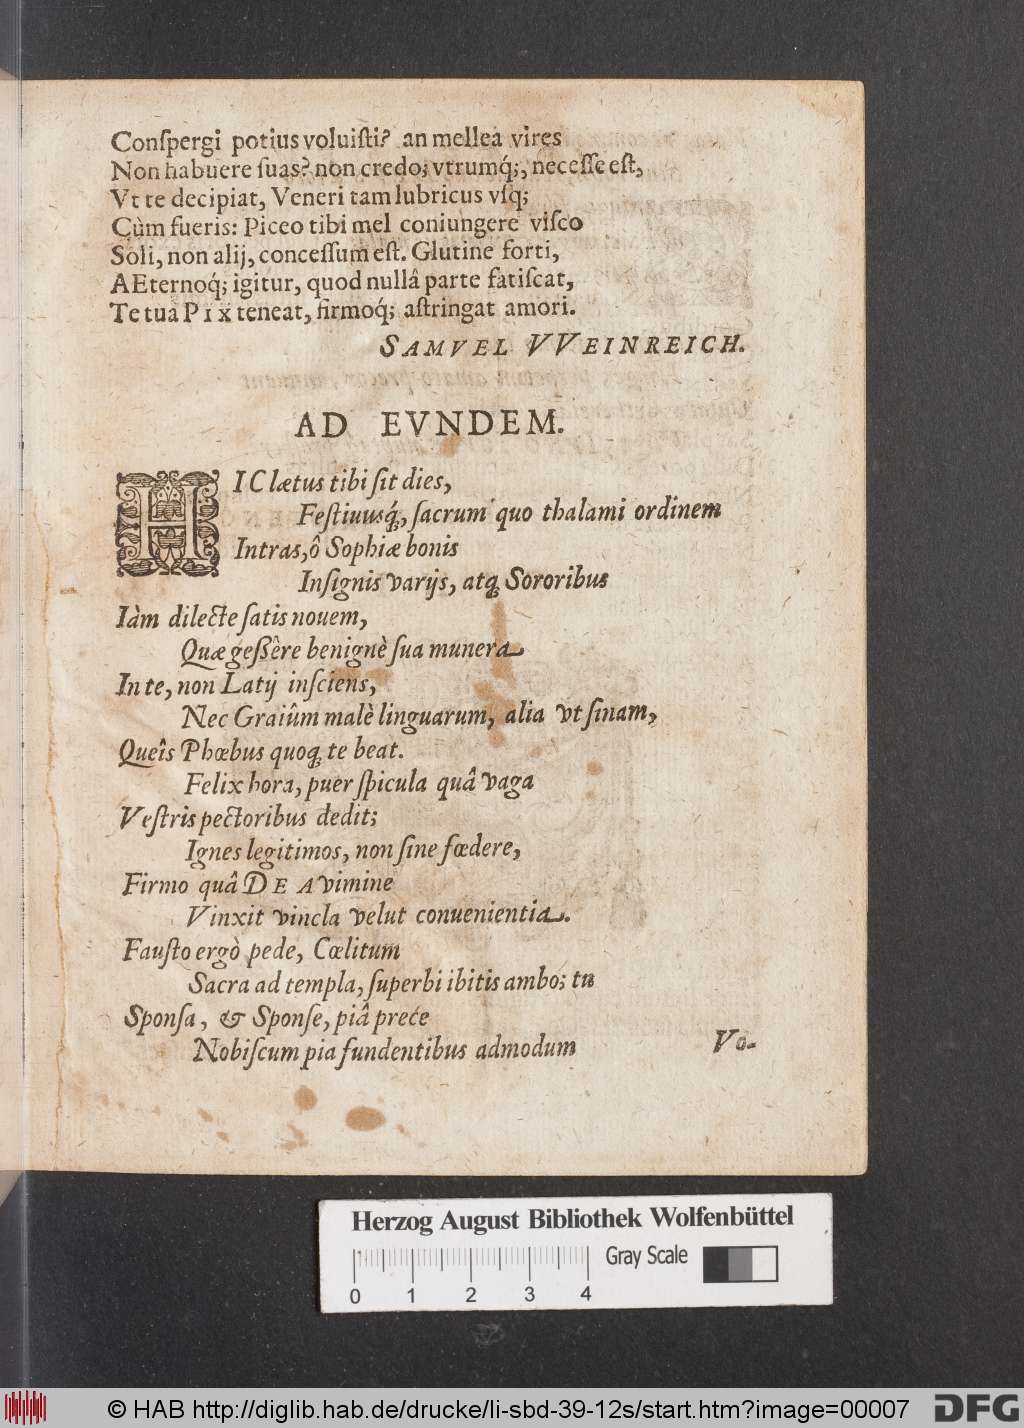 Conſpergi potius voluiſti? an mellea vires
Non habuere ſuas? non credo; vtrumq́;, neceſſe eſt,
Vt te decipiat, Veneri tam lubricus vſq;
Cùm fueris: Piceo tibi mel coniungere viſco
Soli, non alij, conceſſum eſt. Glutine forti,
AEternoq́; igitur, quod nullâ parte fatiſcat,
Te tua PIX teneat, firmoq́; aſtringat amori.
SAMVEL VVEINREICH.
AD EVNDEM.
HIC lætus tibi ſit dies,
Feſtiuusq́, ſacrum quo thalami ordinem
Intras, ô Sophiæ bonis
Inſignis varijs, atq; Sororibus
Iàm dilecte ſatis nouem,
Quæ geßêre benignè ſua munera
In te, non Latij inſciens,
Nec Graiûm malè linguarum, alia vt ſinam,
Queîs Phœbus quoq; te beat.
Felix hora, puer ſpicula quâ vaga
Veſtris pectoribus dedit;
Ignes legitimos, non ſine fœdere,
Firmo quâ DEA vimine
Vinxit vincla velut conuenientia.
Fauſto ergò pede, Cœlitum
Sacra ad templa, ſuperbi ibitis ambo; tu
Sponſa, & Sponſe, piâ prece
Nobiſcum pia fundentibus admodum
Vo-
Herzog August Bibliothek Wolfenbüttel
Gray Scale
0 1 2 3 4
© HAB http://diglib.hab.de/drucke/li-sbd-39-12s/start.htm?image=00007
DFG